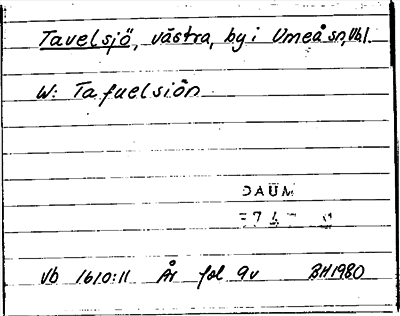 Tavelsjö, västra, by i Umeå sn, Vbl.
W: Tafuelsiön
DAUM
Vb 1610:11 År fol 9v BH1980